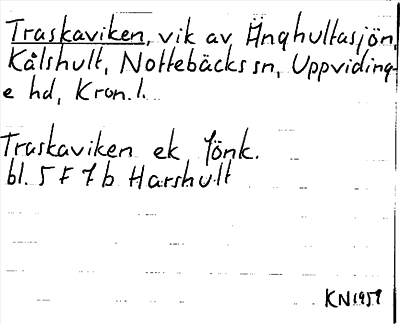 Traskaviken, vik av Änghultasjön,
Kålshult, Nottebäcks sn, Uppviding-
e hd, Kron. l.
Traskaviken ek Jönk.
bl. 5 F 7 b Harshult
KN1959